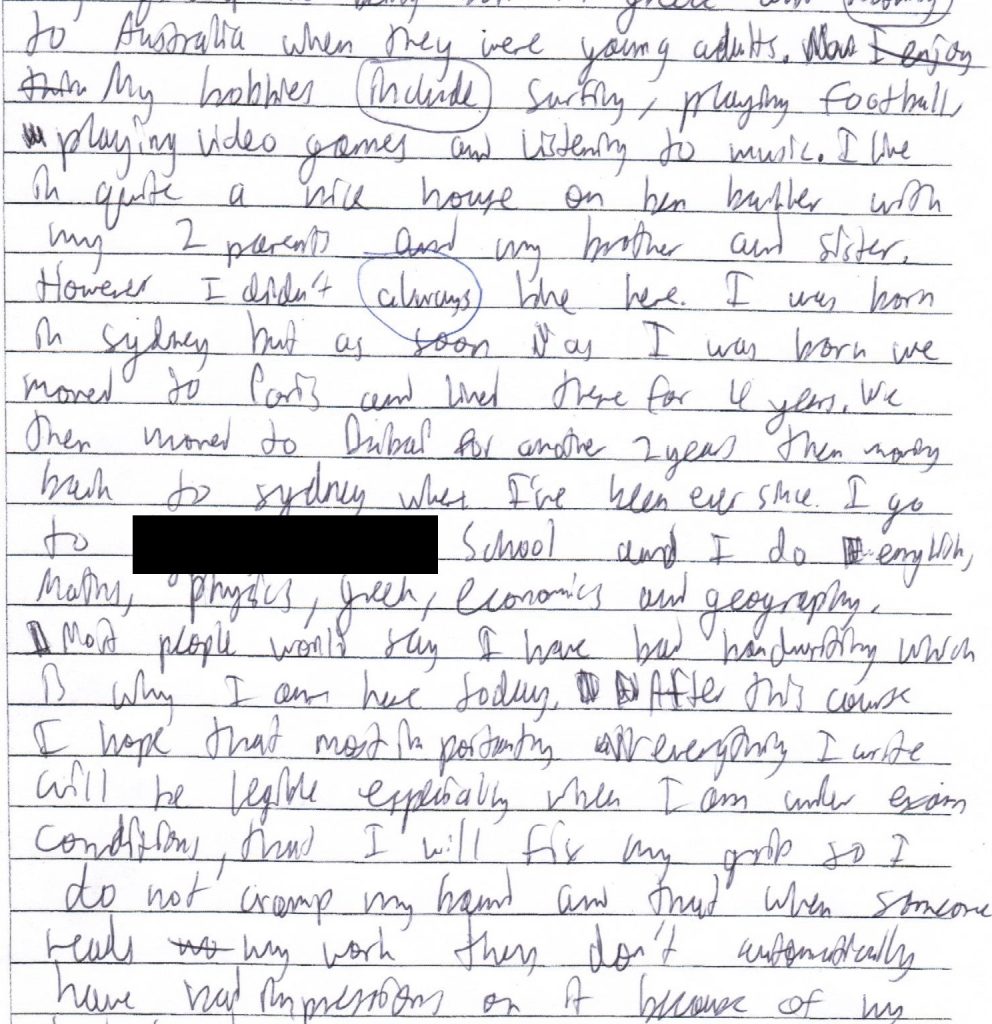 to Australia when they were young adults. I enjoy
My hobbies include surfing, playing football,
playing video games and listening to music. I live
in quite a nice house on ben butler with
my 2 parents and my brother and sister.
However I didn't always live here. I was born
in sydney but as soon as I was born we
moved to Paris and lived there for 4 years. We
then moved to Dubai for another 2 years then moving
back to sydney where I've been ever since. I go
to School and I do english,
Maths, physics, greek, economics and geography.
Most people would say I have bad handwriting which
is why I am here today. After this course
I hope that most importantly everything I write
will be legible especially when I am under exam
conditions, that I will fix my grip so I
do not cramp my hand and that when someone
reads my work they don't automatically
have bad impressions on it because of my